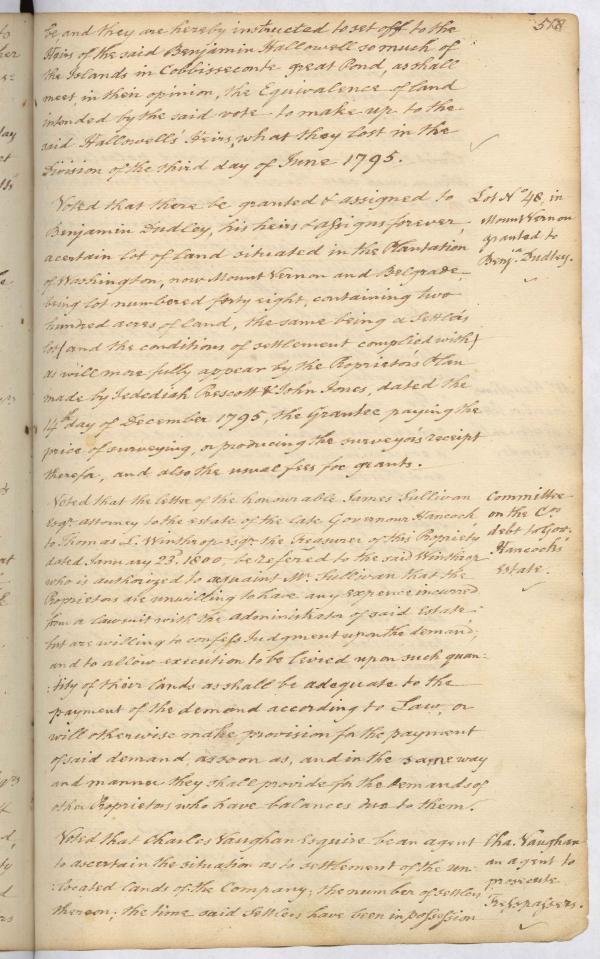 518
be, and they are hereby instructed to set off to the
Heirs of the said Benjamin Hallowell so much of
the Islands in Cobbisseconte great Pond, as shall
meet, in their opinion, the Equivalence of land
intended by the said vote to make up to the
said Hallowell's Heirs, what they lost in the
Division of the third day of June 1795.
Voted that there be granted & assigned to
Benjamin Dudley, his heirs & assigns forever,
a certain lot of land situated in the Plantation
of Washington, now Mount Vernon and Belgrade,
being lot numbered forty eight, containing two
hundred acres of land, the same being a Settlers
lot (and the conditions of settlement complied with)
as will more fully appear by the Proprietors Plan
made by Jedediah Prescott & John Jones, dated the
14th day of December 1795, the Grantee paying the
price of surveying, or producing the surveyors receipt
therefor, and also the usual fees for grants.
Lot No 48, in
Mount Vernon
granted to
Benja Dudley.
Voted that the letter of the honourable James Sullivan
Esqr attorney to the estate of the late Governour Hancock
to Thomas L. Winthrop Esqr the Treasurer of this Propriety
dated January 23d 1800, be refered to the said Winthrop
who is authorized to acquaint Mr Sullivan that the
Proprietors are unwilling to have any expence incurred
from a lawsuit with the administrator of said Estate
but are willing to confess Judgment upon the demand;
and to allow execution to be levied upon such quan:
:tity of their lands as shall be adequate to the
payment of the demand according to Law, or
will otherwise make provision for the payment
of said demand, as soon as, and in the same way
and manner they shall provide for the demands of
other Proprietors who have balances due to them.
Committee
on the Cos
debt to Govr
Hancock's
Estate.
Voted that Charles Vaughan Esquire be an agent
to ascertain the situation as to settlement of the un:
:located lands of the Company; the number of settlers
thereon; the time said Settlers have been in possession
Cha. Vaughan
an agent to
prosecute
Trespassers.